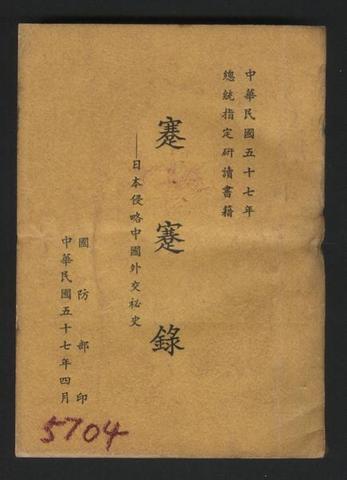 中華民國五十七年
總統指定研讀書籍
蹇蹇錄
——日本侵略中國外交祕史
國防部印
中華民國五十七年四月
5704